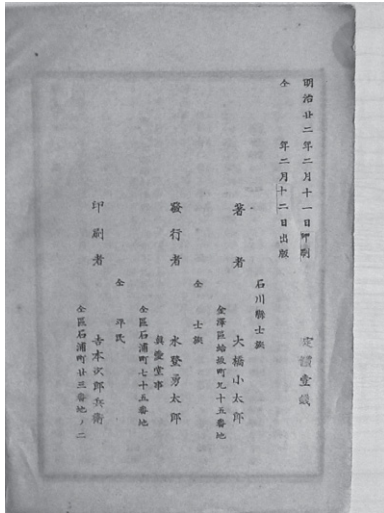 明治廿二年二月十一日印刷
仝　年二月十二日出版
定價壹錢
石川縣士族
著者　大橋小太郎
金澤區町九十五番地
仝士族
發行者　水登勇太郎
眞盛堂事
仝區石浦町七十五番地
仝平民
印刷者　吉本次郎兵衛
仝區石浦町廿三番地ノ二